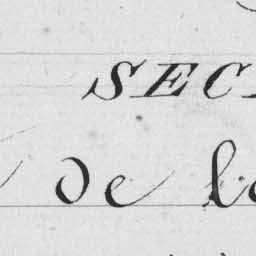 SEC
de la